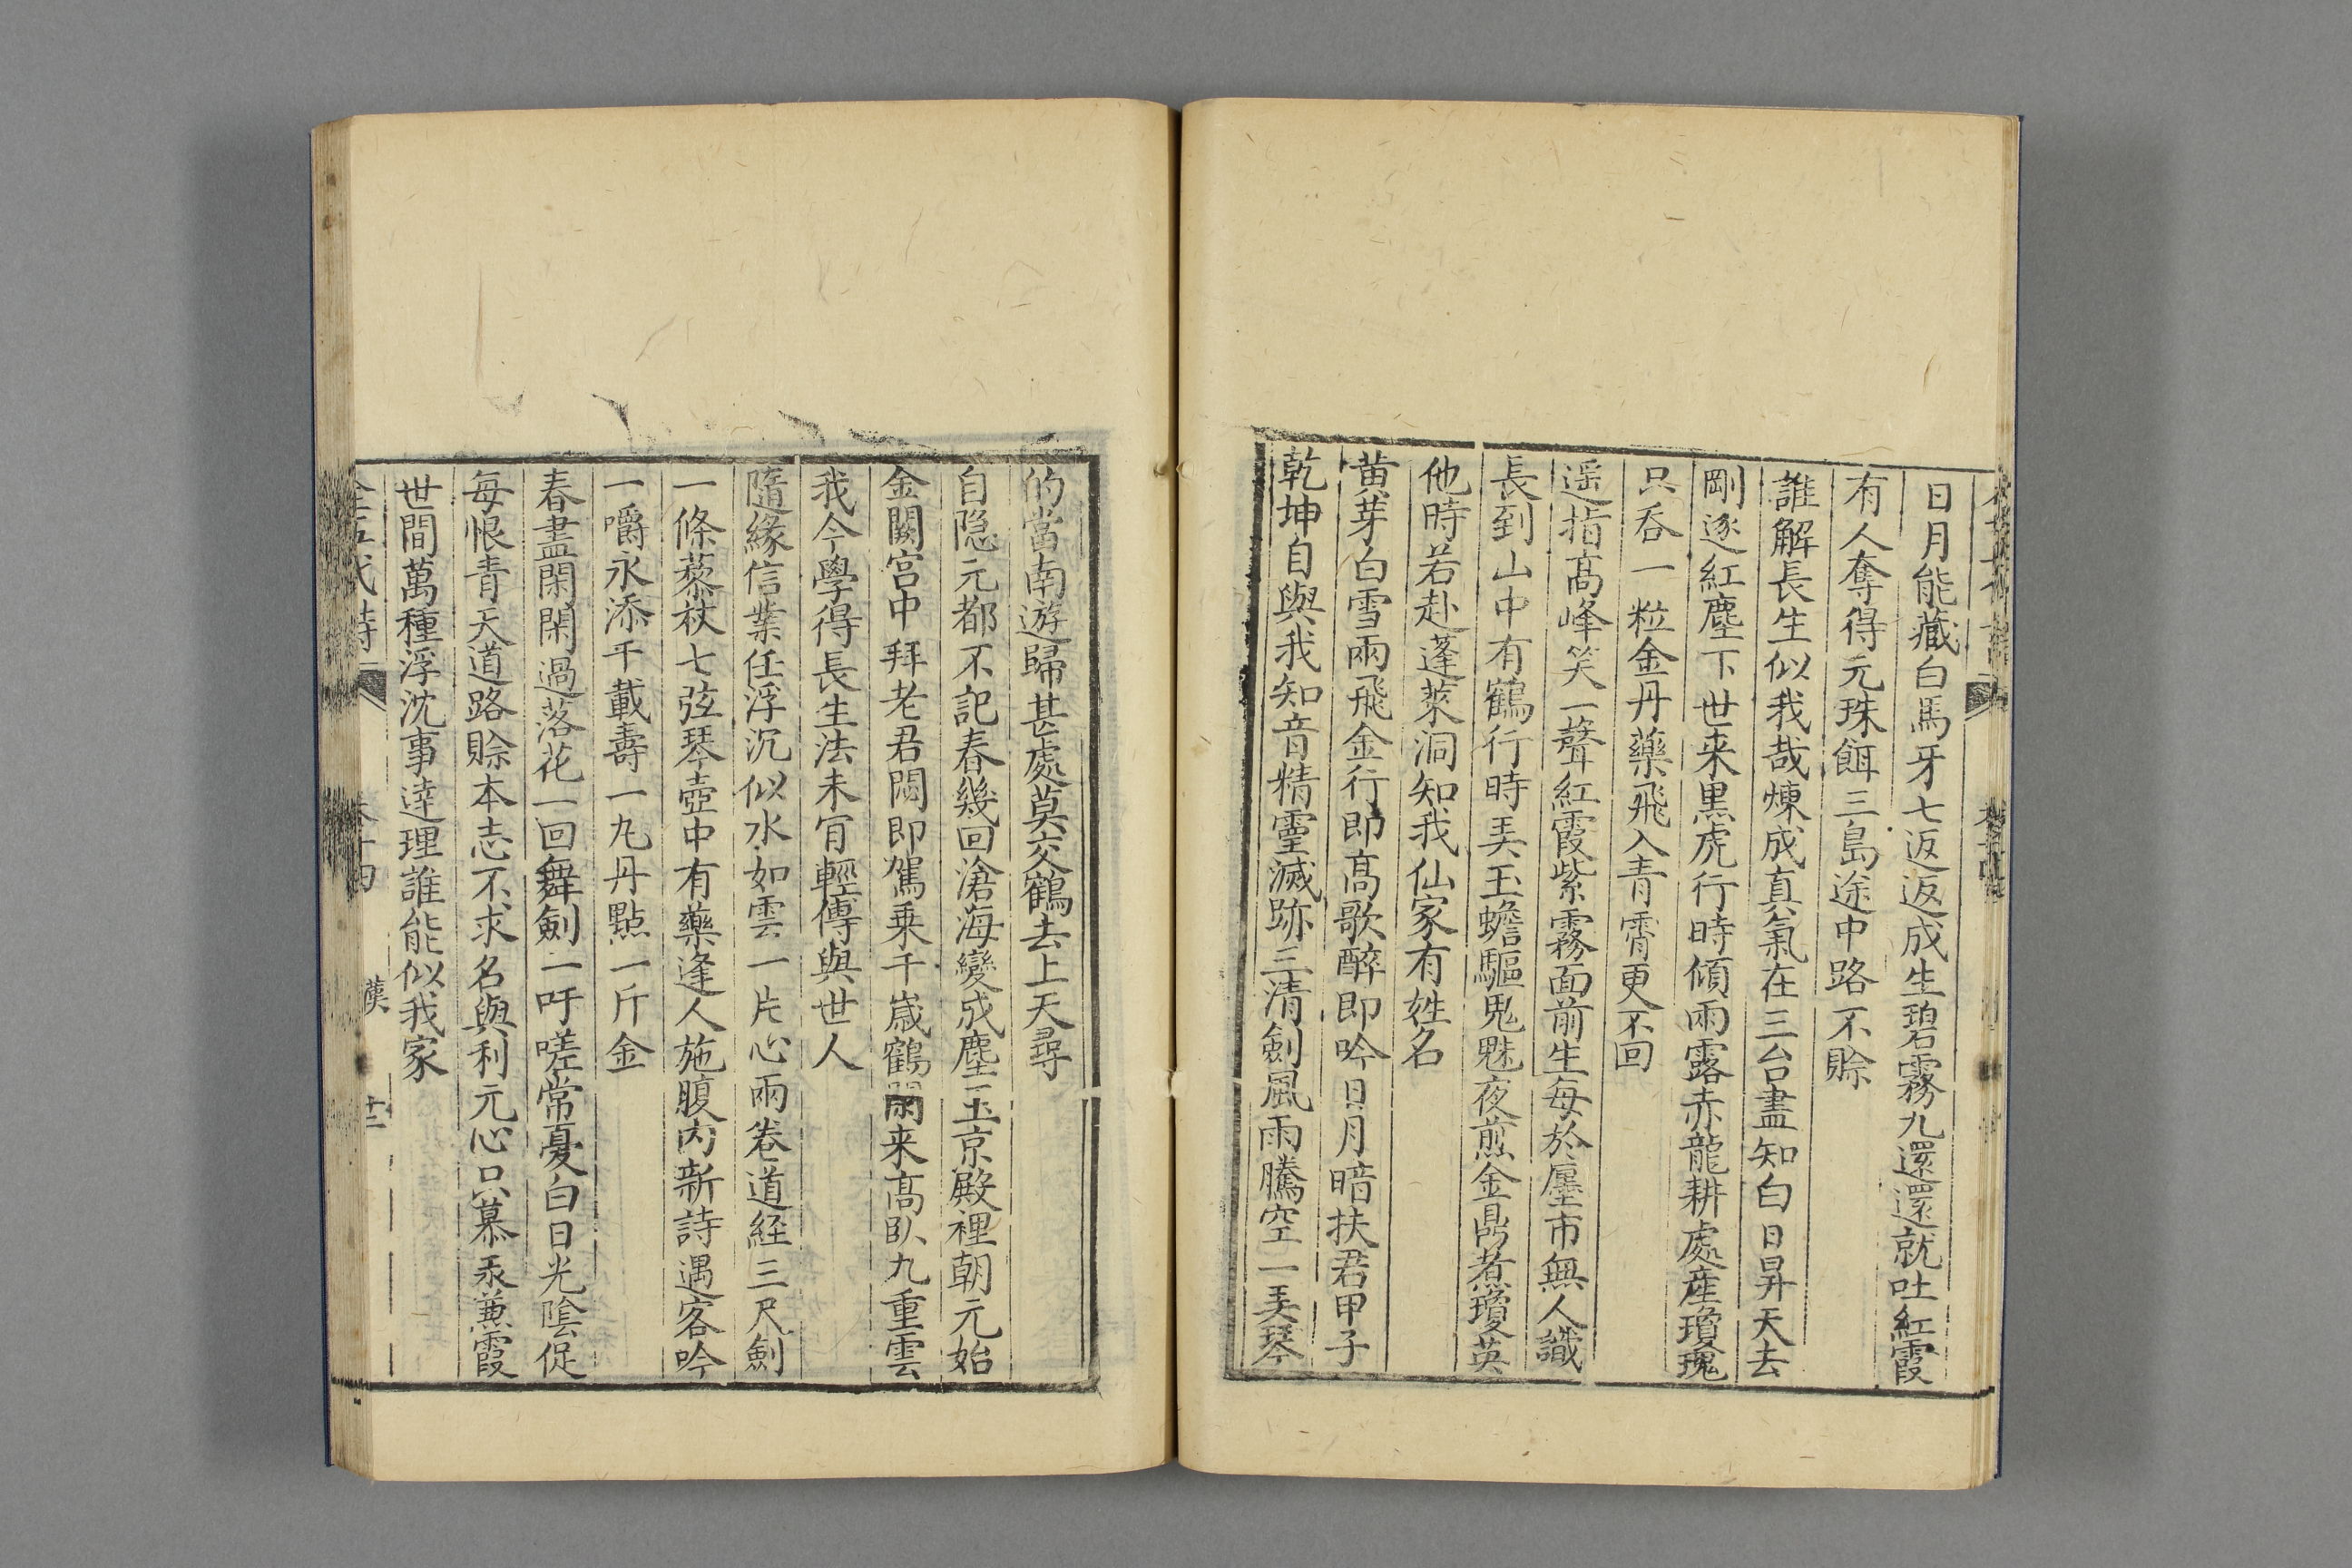 日月能藏白馬牙七返返成生碧霧九還還就吐紅霞
有人奪得元珠餌三島途中路不賒
誰解長生似我哉煉成真氣在三台盡知白日昇天去
剛逐紅塵下世来黒虎行時傾雨露赤龍耕處産瓊瑰
只吞一粒金丹藥飛入青霄更不回
遥指高峰笑一聲紅霞紫霧面前生每於廛市無人識
長到山中有鶴行時弄玉蟾驅鬼魅夜煎金鼎煮瓊英
他時若赴蓬萊洞知我仙家有姓名
黄芽白雪兩飛金行即高歌醉即吟日月暗扶君甲子
乾坤自與我知音精靈滅跡三清劍風雨騰空一弄琴
的當南遊歸甚處莫交鶴去上天尋
自隐元都不記春幾回滄海變成塵玉京殿裡朝元始
金闕宫中拜老君悶即駕乗千嵗鶴閑来高臥九重雲
我今學得長生法未肎輕傳與世人
隨緣信業任浮沉似水如雲一片心兩卷道経三尺劍
一條藜杖七弦琴壺中有藥逢人施腹内新詩遇客吟
一嚼永添千載壽一九丹點一斤金
春盡閑閑過落花一回舞劍一吁嗟常憂白日光陰促
每恨青天道路賒本志不求名與利元心只慕汞兼霞
世間萬種浮沈事達理誰能似我家
全五代詩 卷十四 漢 十二